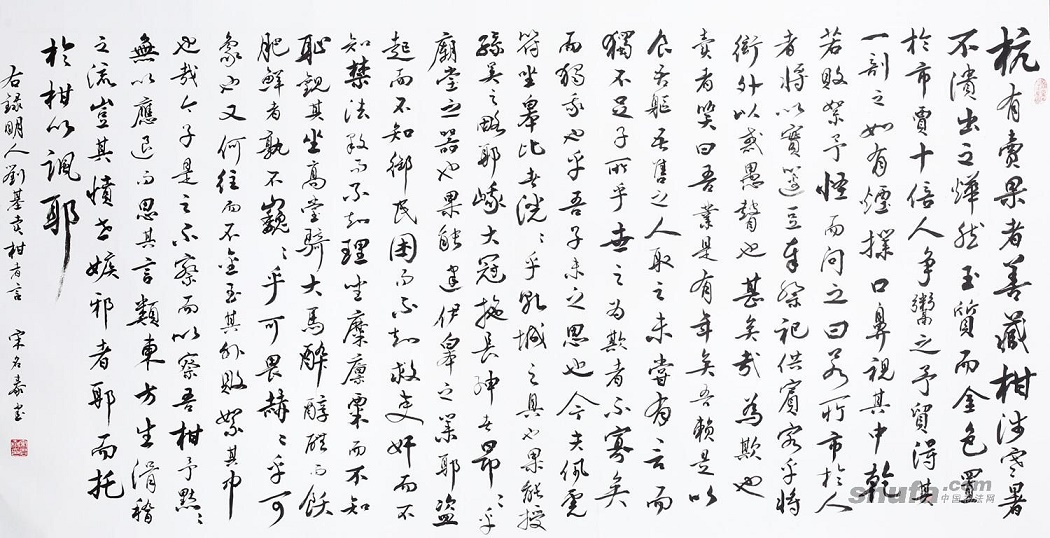 杭有賣果者善藏柑涉寒暑
不潰出之燁然玉質而金色置
於市賈十倍人爭鬻之予貿得其
一剖之如有煙撲口鼻視其中乾
若敗絮予怪而問之曰若所市於人
者將以實籩豆奉祭祀供賓客乎將
衒外以惑愚瞽也甚矣哉為欺也
賣者笑曰吾業是有年矣吾賴是以
食吾軀吾售之人取之未嘗有言而
獨不足子所乎世之為欺者不寡矣
而獨我也乎吾子未之思也今夫佩虎
符坐皋比者洸〻乎乾城之具也果能授
孫吳之略耶峨大冠拖長紳者昂〻乎
廟堂之器也果能建伊皋之業耶盜
起而不知御民困而不知救吏奸而不
知禁法斁而不知理坐糜廩粟而不知
恥觀其坐高堂騎大馬醉醇醴而飫
肥鮮者孰不巍〻乎可畏赫〻乎可
象也又何往而不金玉其外敗絮其中
也哉今子是之不察而以察吾柑予默〻
無以應退而思其言類東方生滑稽
之流豈其憤世嫉邪者耶而托
於柑以諷耶
右錄明人劉基賣柑者言 宋名泰書
shufa.com
中国书法网